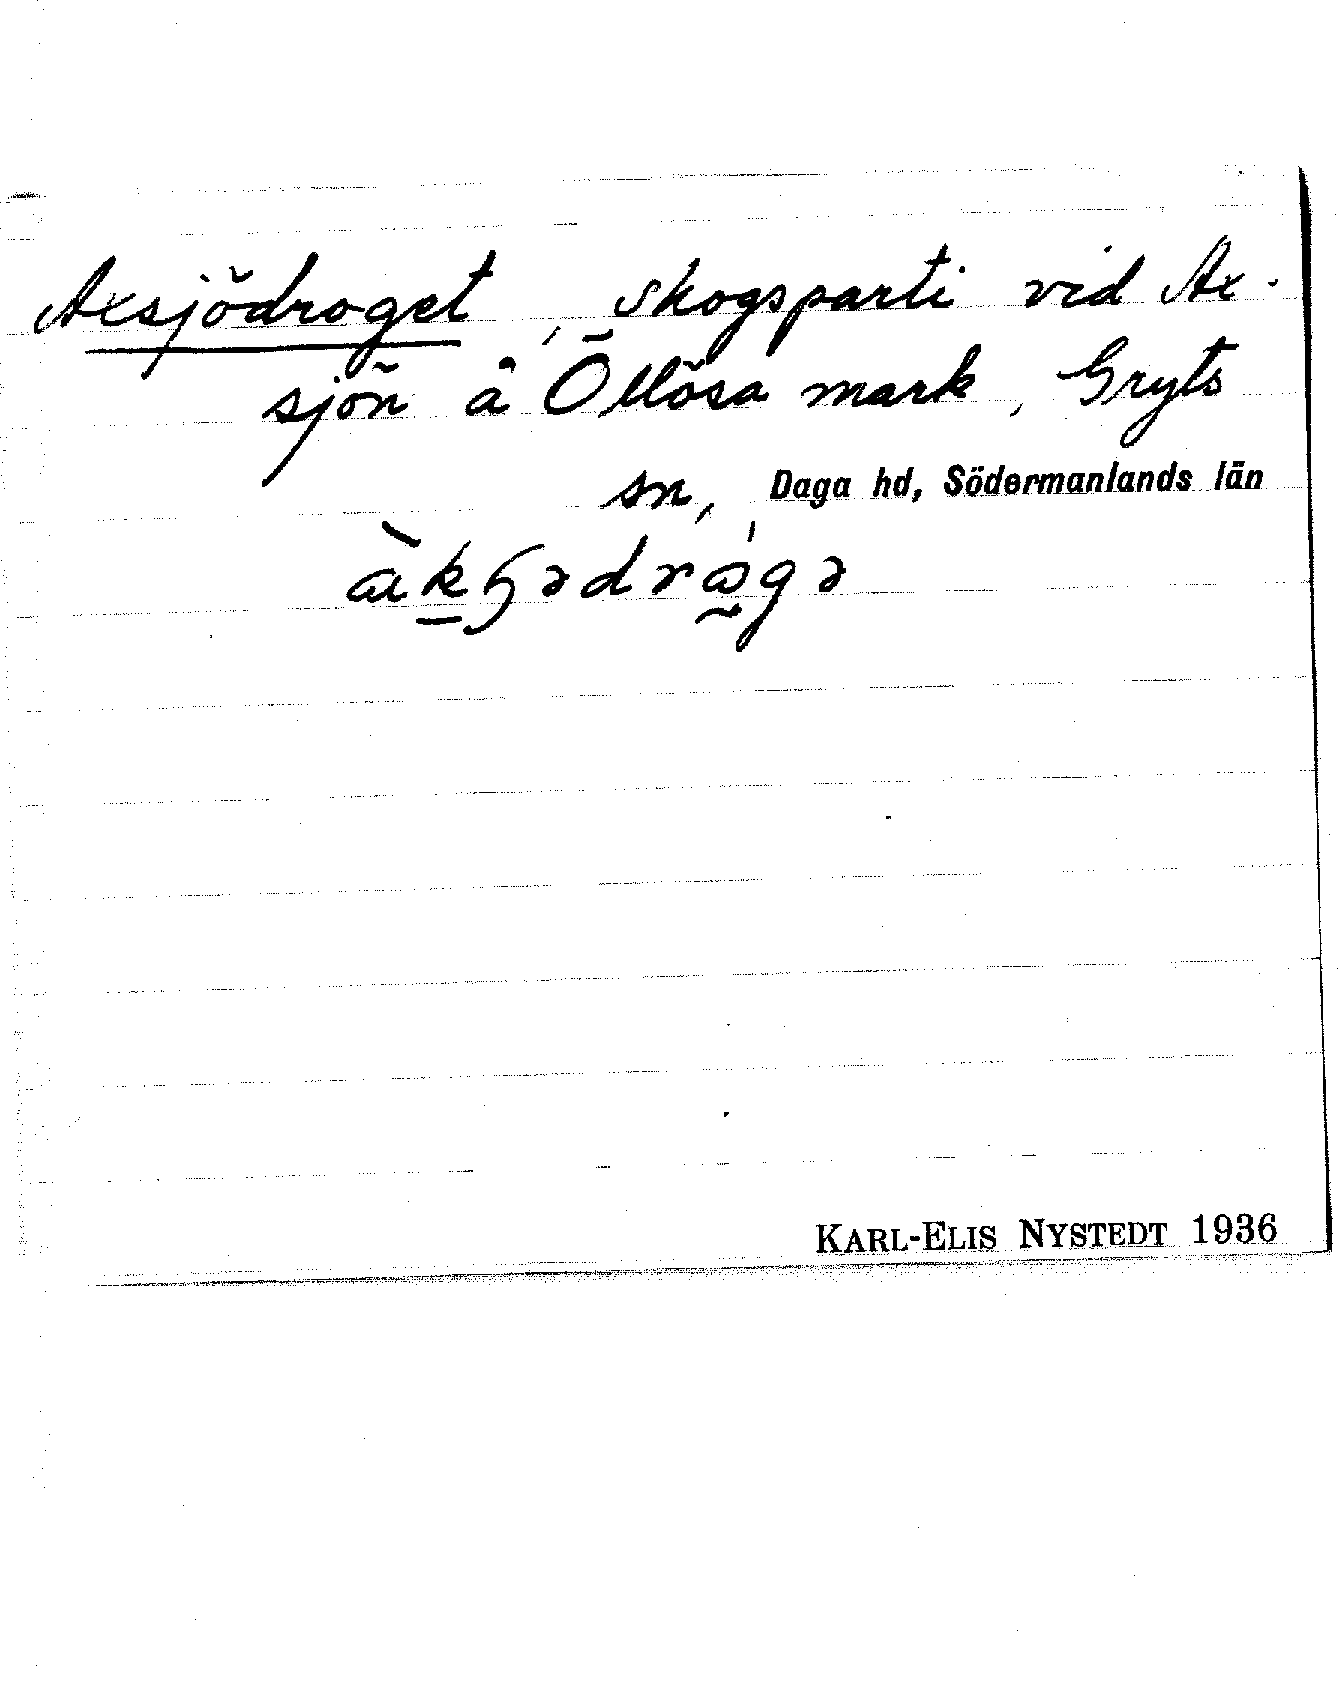 Axsjödroget, skogsparti vid Ax-
sjön å Öllösa mark, Gryts
sn, Daga hd, Södermanlands län
KARL-ELIS NYSTEDT 1936